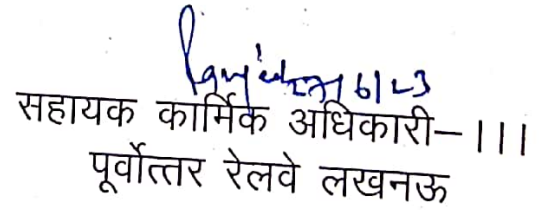 6/23
सहायक कार्मिक अधिकारी–III
पूर्वोत्तर रेलवे लखनऊ